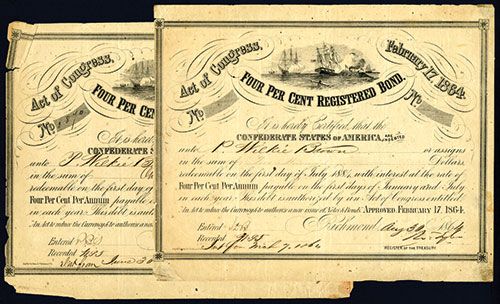 Act of Congress,
FOUR PER CENT
No
It is hereby
CONFEDERATE STATES
unto P. Wilkie
in the sum of
redeemable on the first day of
Four Per Cent Per Annum payable
in each year. This debt is
An Act to reduce the Currency & to authorize a new
Entered
Recorded
June 30
Act of Congress,
February 17, 1864.
FOUR PER CENT REGISTERED BOND.
No
No
It is hereby Certified, that the
CONFEDERATE STATES OF AMERICA,
unto P. Wilkie Brown or assigns
in the sum of Dollars
redeemable on the first day of July 188 with interest at the rate of
Four Per Cent Per Annum payable on the first days of January and July
in each year. This debt is authorized by an Act of Congress entitled
An Act to reduce the Currency & to authorize a new issue of Notes & Bonds. APPROVED FEBRUARY 17, 1864.
Entered
Richmond, Aug 30 1864
Recorded
REGISTER OF THE TREASURY